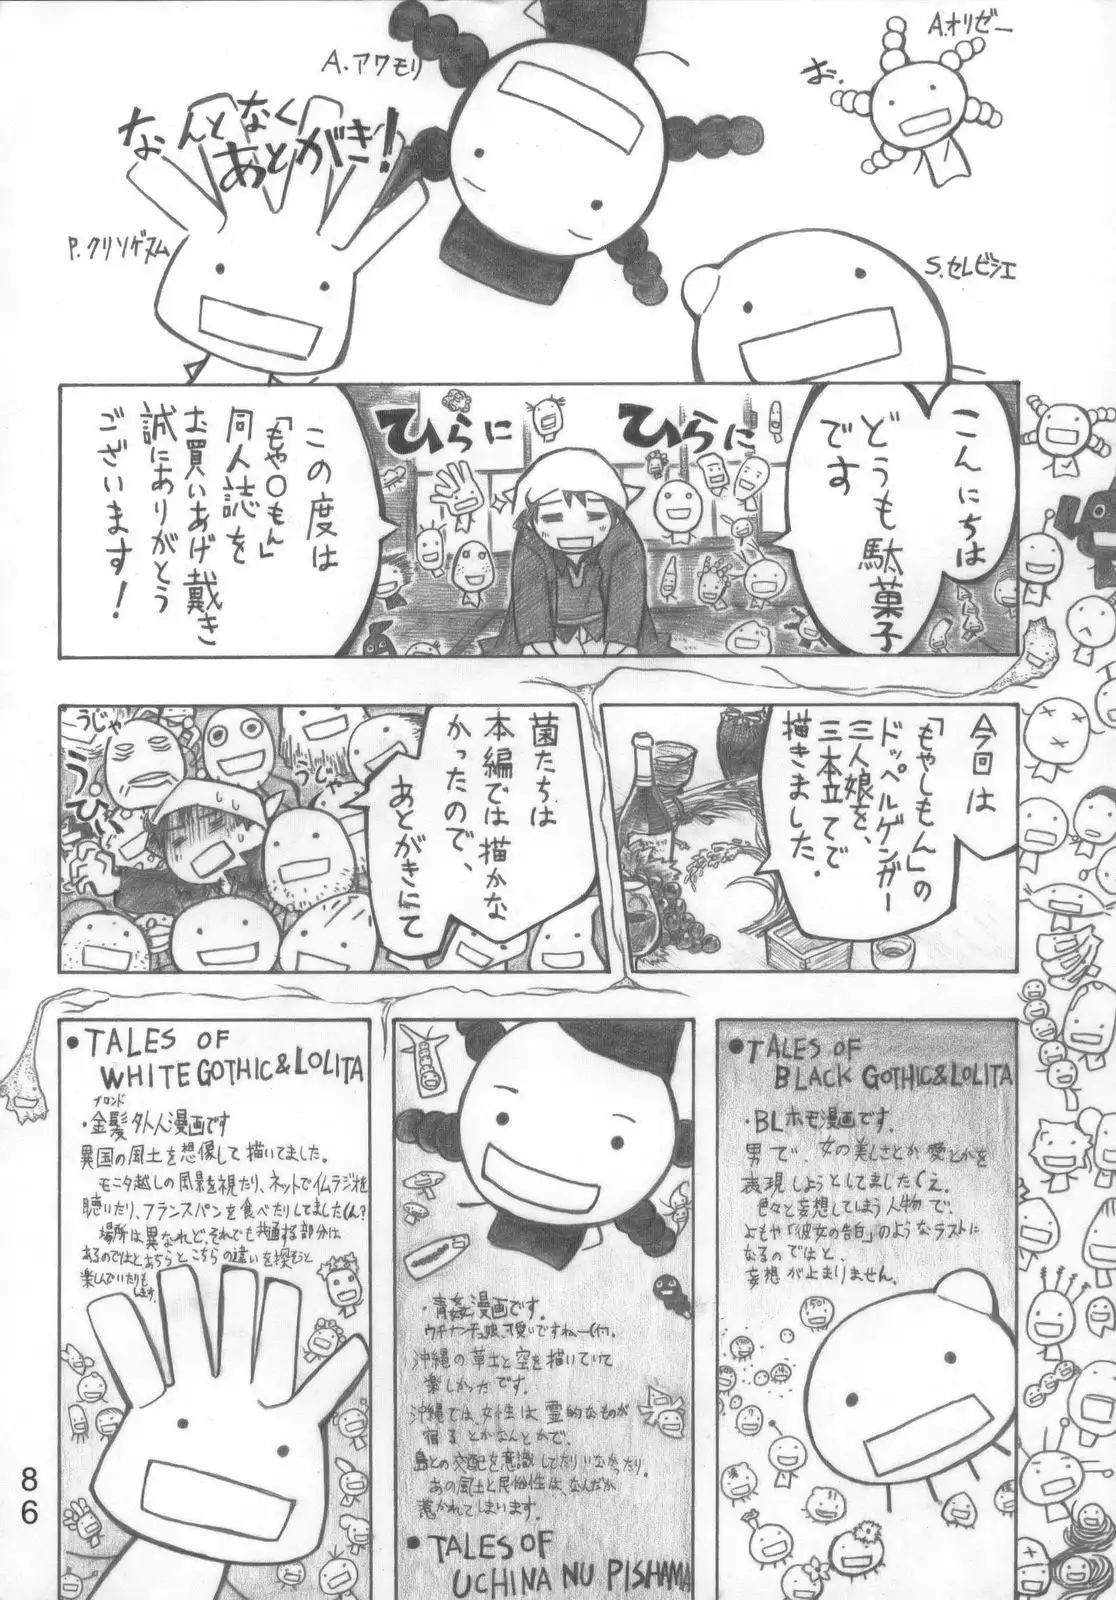 A.オリゼー
お。
A.アワモリ
なんとなく
あとがき!
P.クリソゲヌム
S.セレビシエ
こんにちは
どうも駄菓子
です
ひらに
ひらに
この度は
「もや〇もん」
同人誌を
お買いあげ戴き
誠にありがとう
ございます!
今回は
「もやしもん」の
ドッペルゲンガー
三人娘を、
三本立てで
描きました。
菌たちは
本編では描かな
かったので、
あとがきにて
うじゃ
うじゃ
う。
ひぃ
●TALES OF
BLACK GOTHIC&LOLITA
・BLホモ漫画です。
男で、女の美しさとか愛とかを
表現しようとしてましたくえ。
色々と妄想してしまう人物で、
よもや「彼女の告白」のようなラストに
なるのではと、
妄想が止まりません。
・青姦漫画です。
ウチナーンチュ娘、可愛いですねー
沖縄の草土と空を描いていて
楽しかったです。
沖縄では、女性は霊的なものが
宿るとかなんとかで、
島との交配を意識してたりいなかったり。
あの風土と民俗性は、なんだか
惹かれてしまいます。
●TALES OF
UCHINA NU PISHAMA
●TALES OF
WHITE GOTHIC&LOLITA
ブロンド
・金髪外人漫画です
異国の風土を想像して描いてました。
モニタ越しの風景を視たり、ネットでイムラジオを
聴いたり、フランスパンを食べたりしてました
場所は異なれど、それでも共通する部分は
あるのではと、あちらとこちらの違いを探そうと
楽しんでいたりも
します。
86